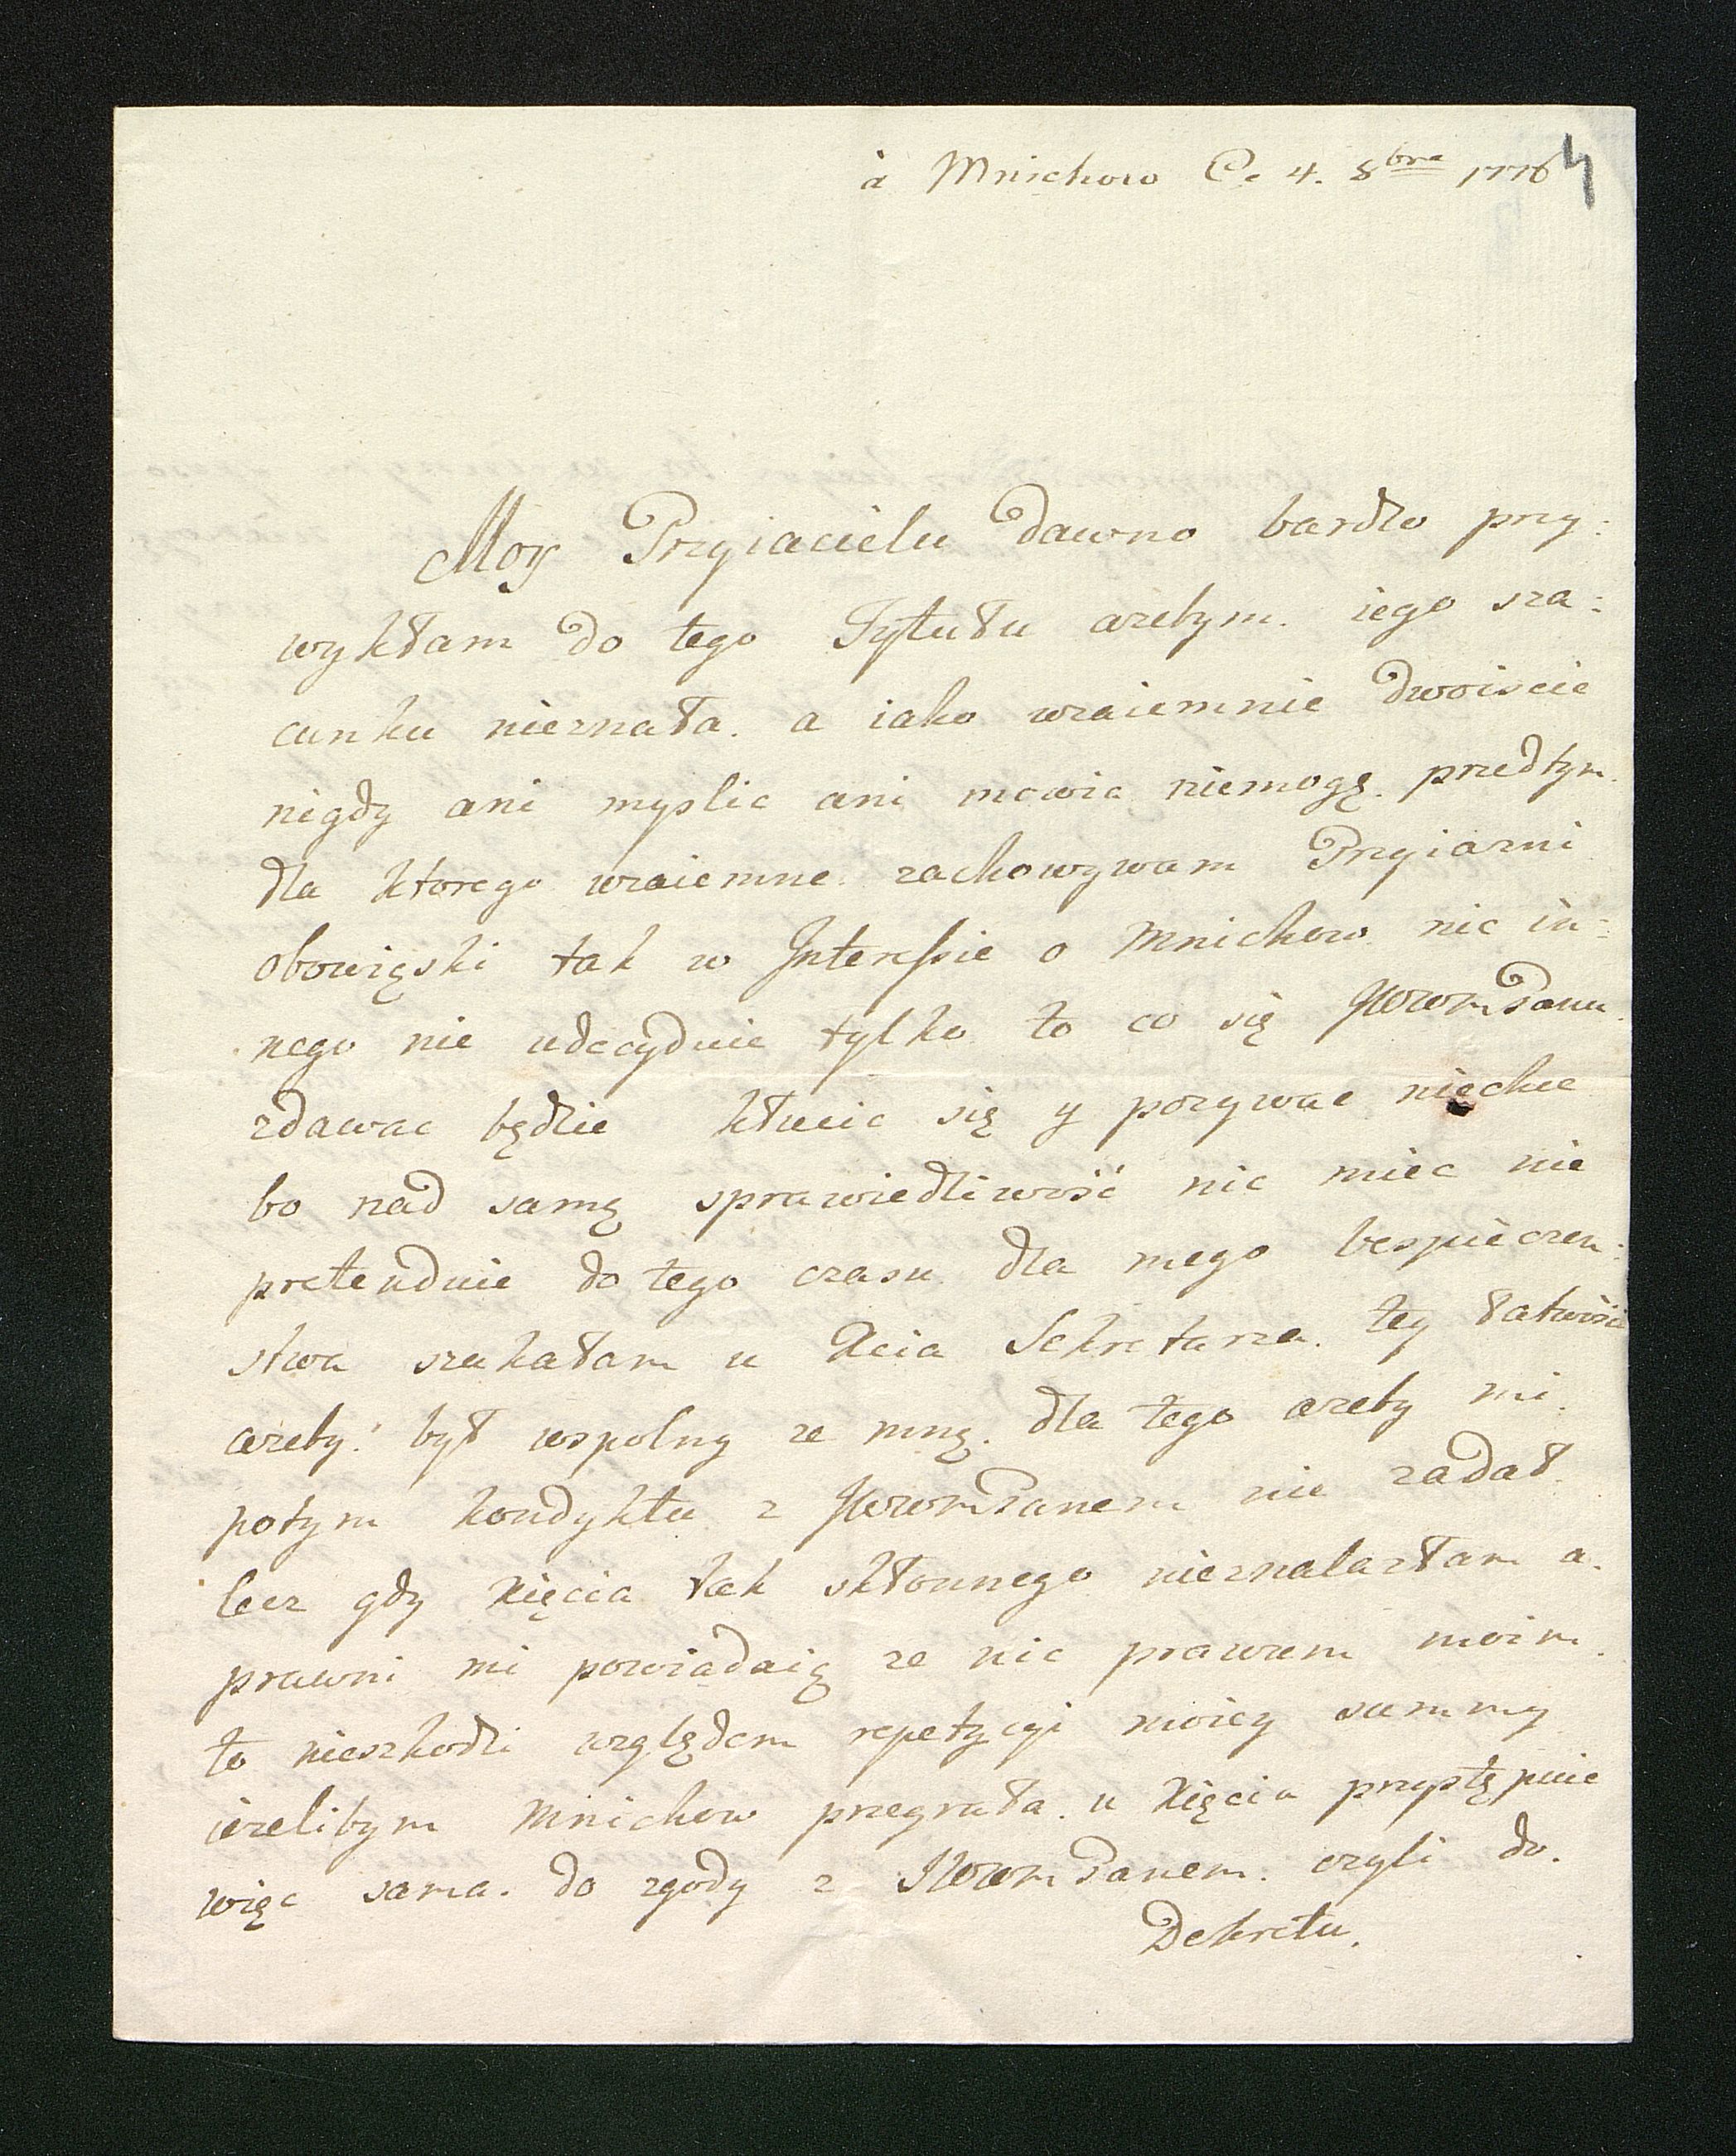 à Mnichow Ce 4. 8bre 1776
4
Moy Przyiacielu dawno bardzo przy:
wykłam do tego Tytułu azebym. iego sza:
cunku nieznała. a iako wzaiemnie dwoiscie
nigdy ani myslic ani mowic niemogę. przedtym.
dla ktorego wzaiemne zachowywam Przyiazni
obowięski tak w Interessie o Mnichow nic in:
nego nie udecyduie tylko to co się JWWMPanu
zdawac będzie kłucic się y pozywac niechce
bo nad samą sprawiedliwość nic miec nie
pretenduie do tego czasu dla mego bespieczen:
stwa szukałam u Xcia Sekretarza. tey łatwości
azeby. był wspolny ze mną. dla tego azeby mi.
potym kondyktu z JWWMPanem nie zadał
lecz gdy Xięcia tak skłonnego nieznalazłam a.
prawni mi powiadaią ze nic prawem moim.
to nieszkodzi względem repetycyi moiey summy
iezelibym Mnichow przegrała. u Xięcia przystępuie
więc sama. do zgody z JWWMPanem. czyli do.
Dekretu.